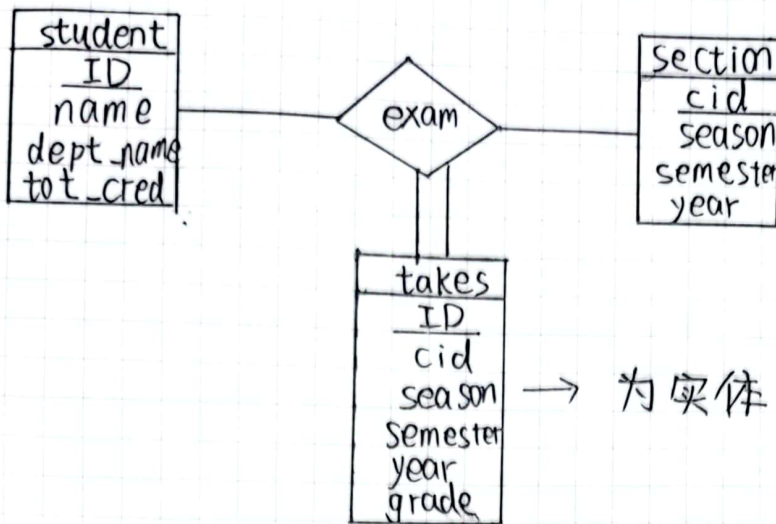 student
ID
name
dept_name
tot_cred
exam
section
cid
season
semester
year
takes
ID
cid
season
semester
year
grade
→ 为实体